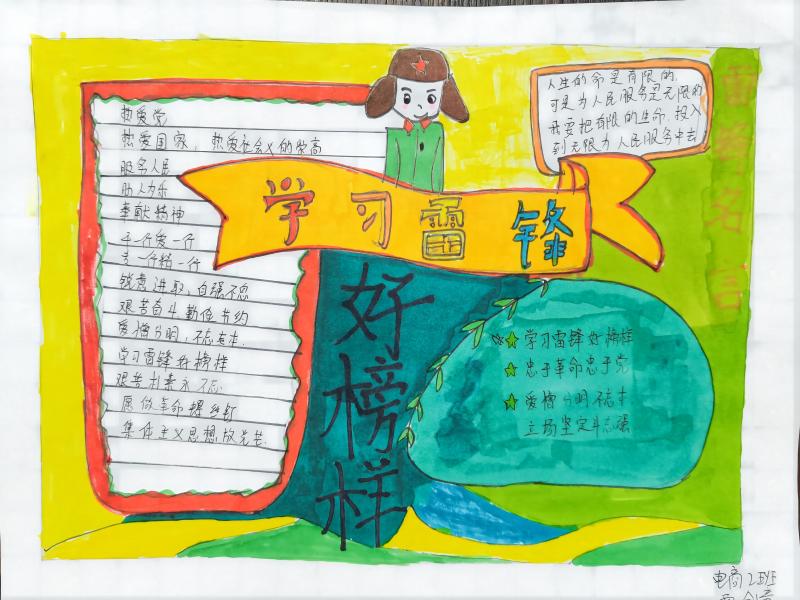 热爱党
热爱国家，热爱社会主义的崇高
服务人民
助人为乐
奉献精神
干一行爱一行
专一行精一行
锐意进取，自强不息
艰苦奋斗勤俭节约
爱憎分明，不忘本
学习雷锋好榜样
艰苦朴素永不忘
愿做革命螺丝钉
集体主义思想放光芒
人生的命是有限的，
可是为人民服务是无限的
我要把有限的生命，投入
到无限为人民服务中去
雷锋名言
学习雷锋
好榜样
学习雷锋好榜样
忠于革命忠于党
爱憎分明不忘本
立场坚定斗志强
电商